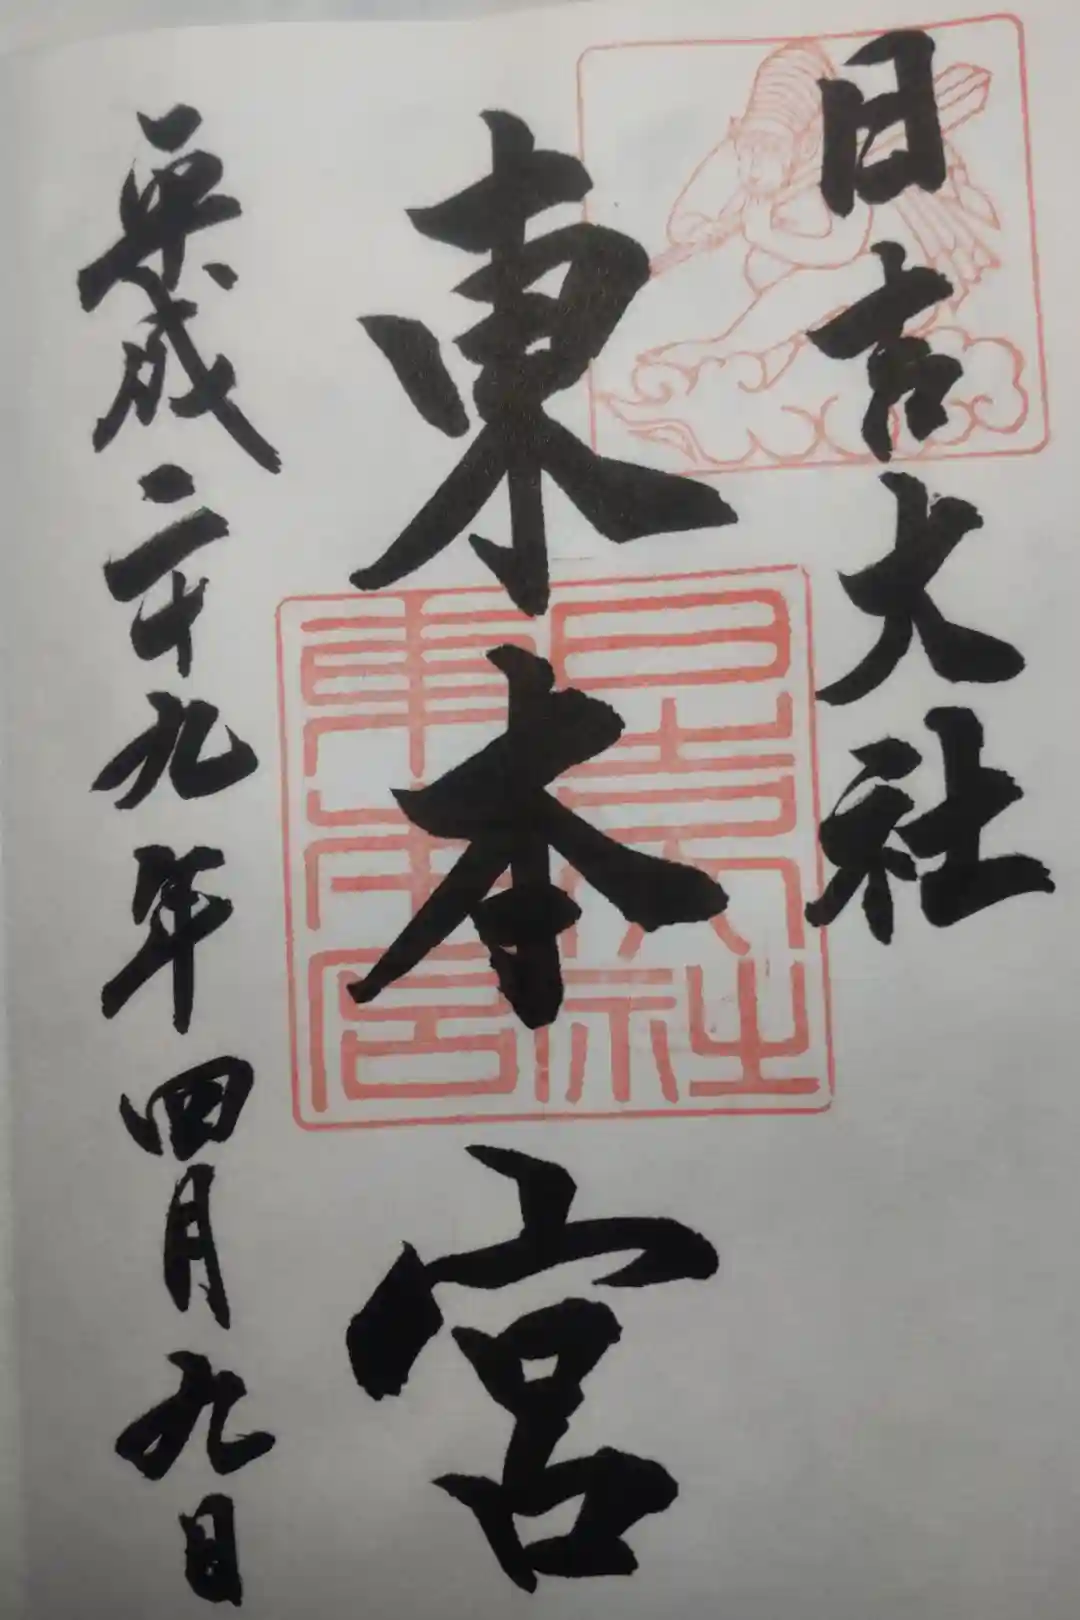 日吉大社
東本宮
平成二十九年四月九日
日吉大社
東本宮